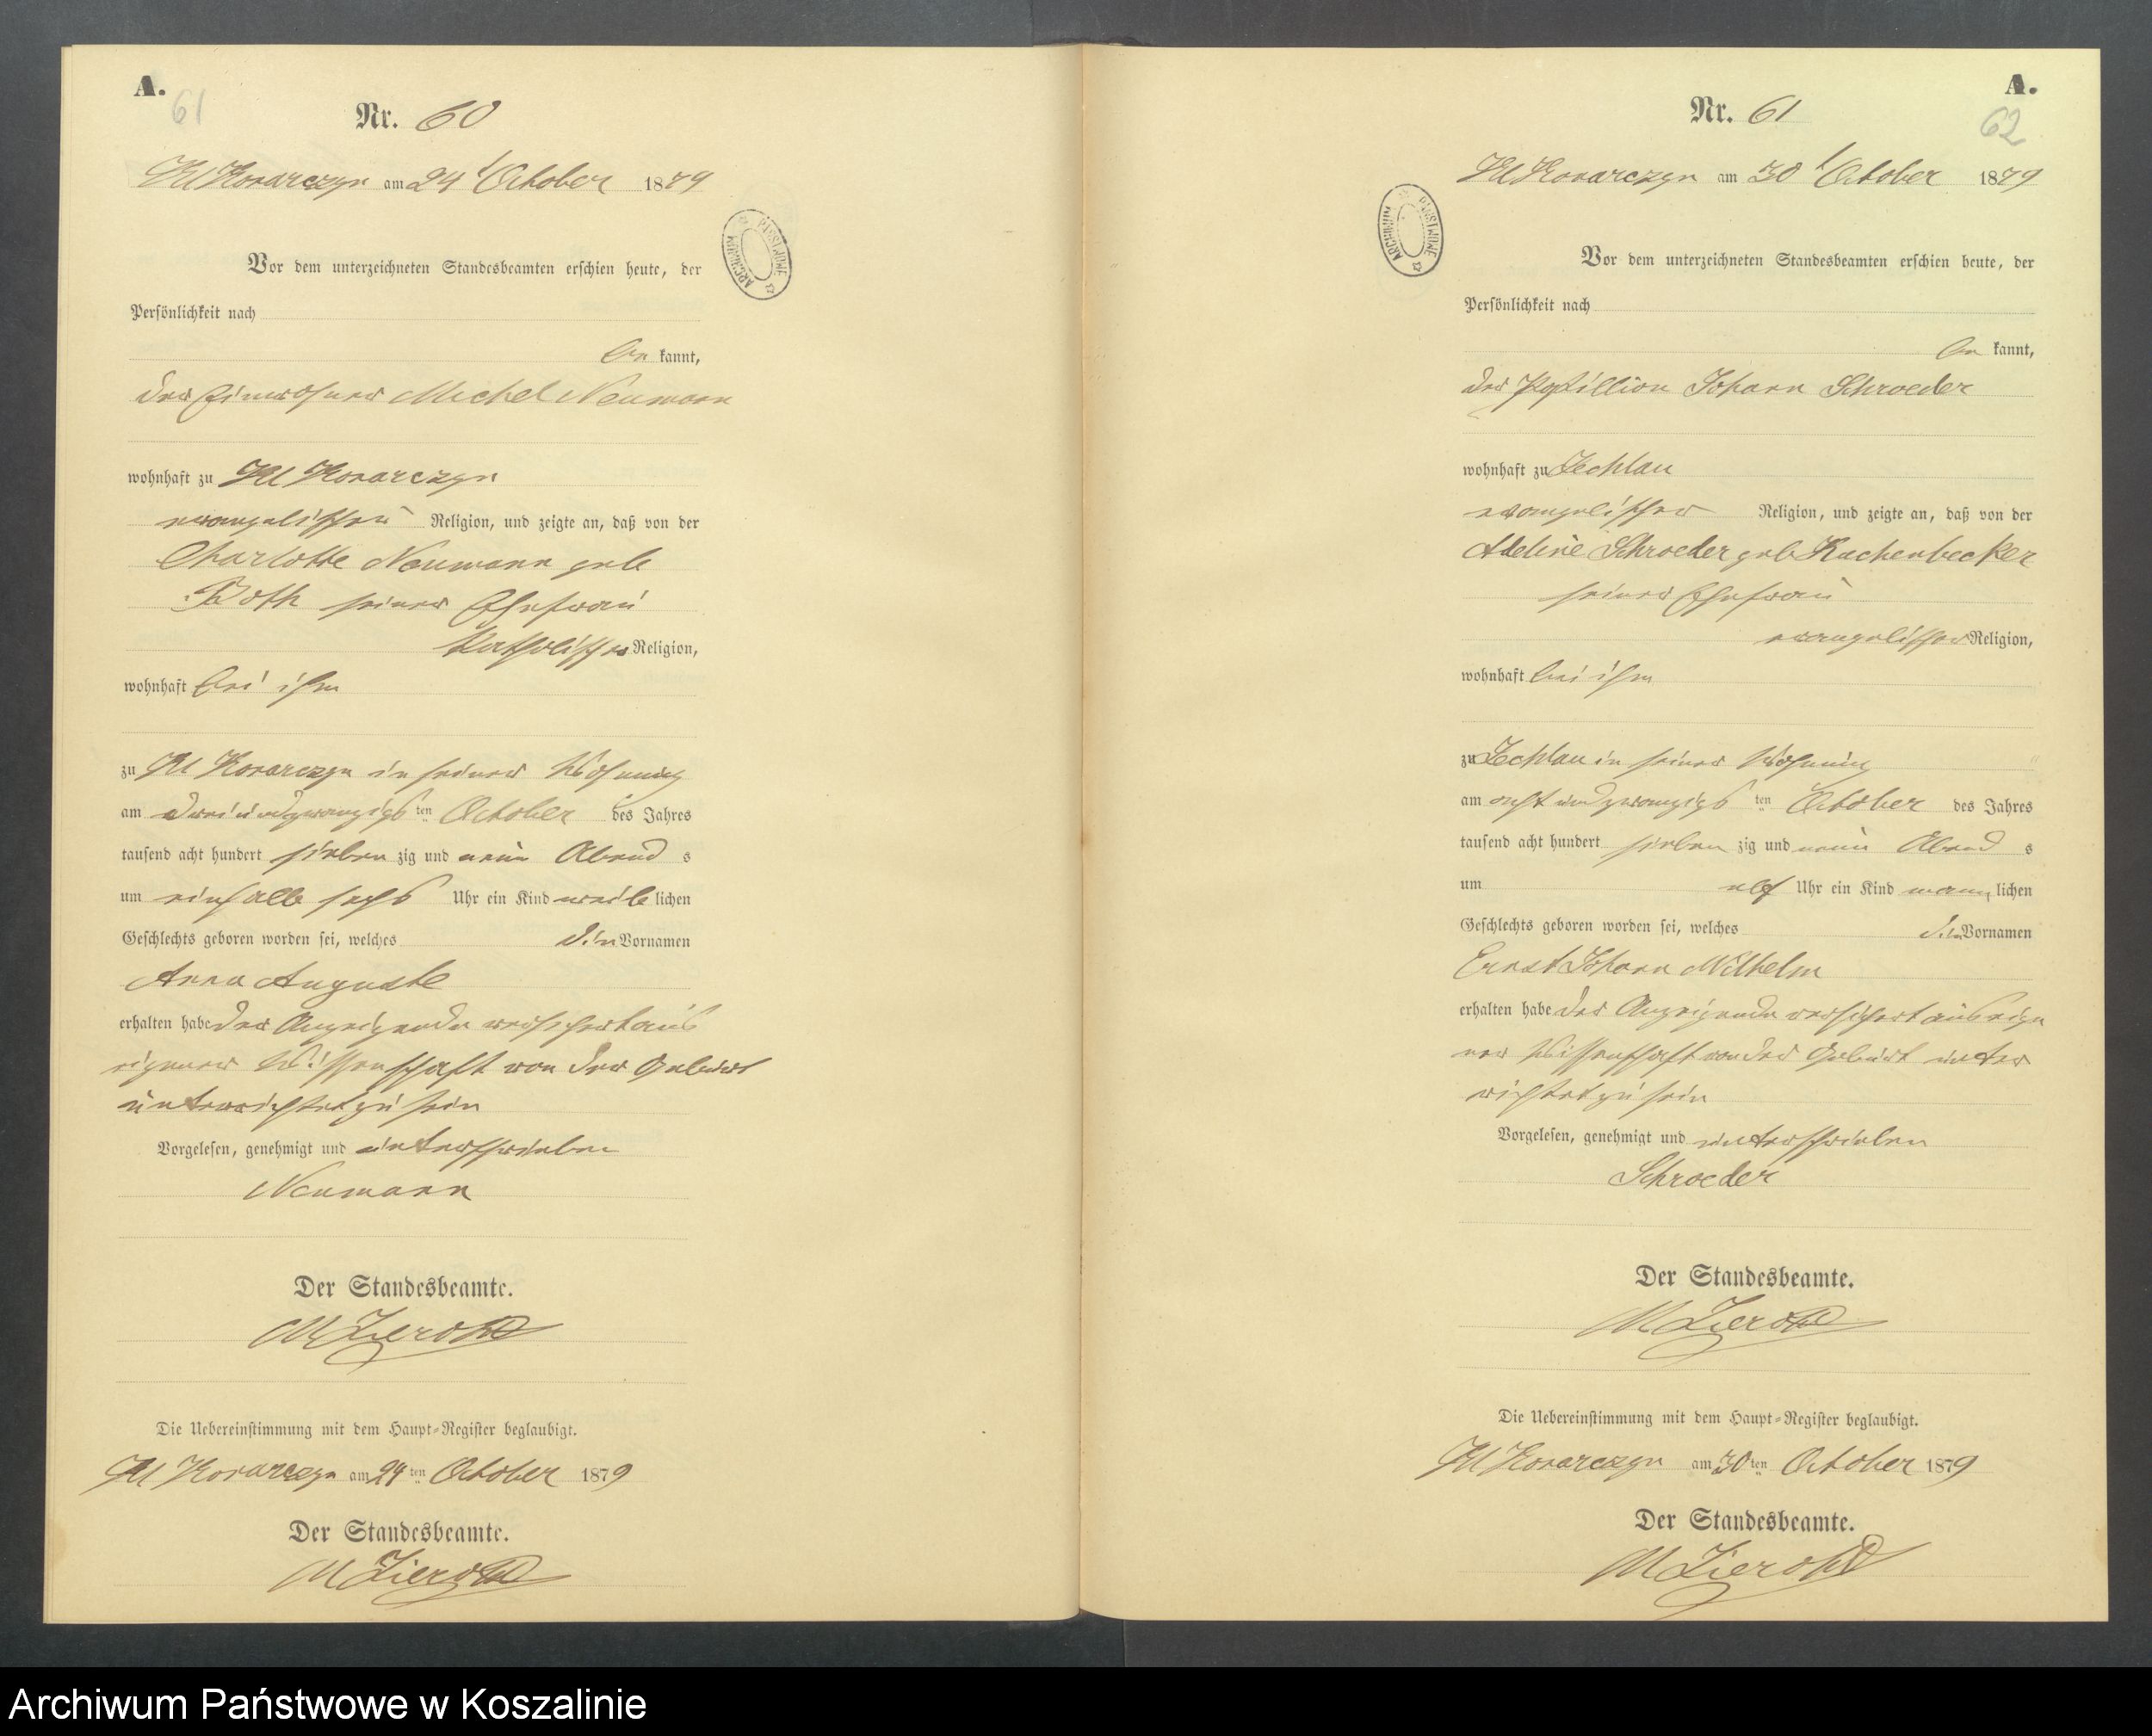 A.
61
Nr. 60
Kl Konarczyn am 24t October 1879
Vor dem unterzeichneten Standesbeamten erschien heute, der
Persönlichkeit nach
be kannt,
der Einwohner Michel Neumann
wohnhaft zu Kl Konarczyn
evangelischer Religion, und zeigte an, daß von der
Charlotte Neumann geb
Both seiner Ehefrau
katholischer Religion,
wohnhaft bei ihm
zu Kl Konarczyn in seiner Wohnung
am dreiundzwanzigsten October des Jahres
tausend acht hundert sieben zig und neun Abend s
um einhalb sechs Uhr ein Kind weib lichen
Geschlechts geboren worden sei, welches die Vornamen
Anna Auguste
erhalten habe der Anzeigende versichert aus
eigener Wissenschaft von der Geburt
unterrichtet zu sein
Vorgelesen, genehmigt und unterschrieben
Neumann
Der Standesbeamte.
M Zierold
Die Uebereinstimmung mit dem Haupt-Register beglaubigt.
Kl Konarczyn am 24ten October 1879
Der Standesbeamte.
M Zierold
A.
62
Nr. 61
Kl Konarczyn am 30t October 1879
Vor dem unterzeichneten Standesbeamten erschien heute, der
Persönlichkeit nach
be kannt,
der Postillion Johann Schroeder
wohnhaft zu Zechlau
evangelischer Religion, und zeigte an, daß von der
Adeline Schroeder geb Kuchenbecker
seiner Ehefrau
evangelischer Religion,
wohnhaft bei ihm
zu Zechlau in seiner Wohnung
am achtundzwanzigsten October des Jahres
tausend acht hundert sieben zig und neun Abend s
um elf Uhr ein Kind männ lichen
Geschlechts geboren worden sei, welches die Vornamen
Ernst Johann Wilhelm
erhalten habe der Anzeigende versichert aus eige
ner Wissenschaft von der Geburt unter
richtet zu sein
Vorgelesen, genehmigt und unterschrieben
Schroeder
Der Standesbeamte.
M Zierold
Die Uebereinstimmung mit dem Haupt-Register beglaubigt.
Kl Konarczyn am 30ten October 1879
Der Standesbeamte.
M Zierold
ARCHIWUM PAŃSTWOWE
ARCHIWUM PAŃSTWOWE
Archiwum Państwowe w Koszalinie